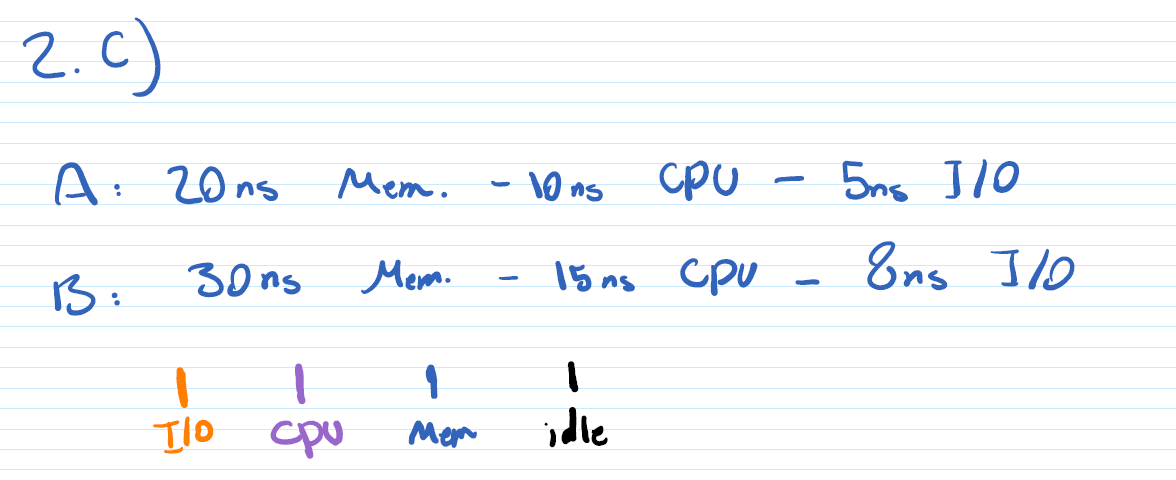 2. C)
A: 20ns Mem. - 10ns CPU - 5ns I/O
B: 30ns Mem. - 15ns CPU - 8ns I/O
I/O CPU Mem idle